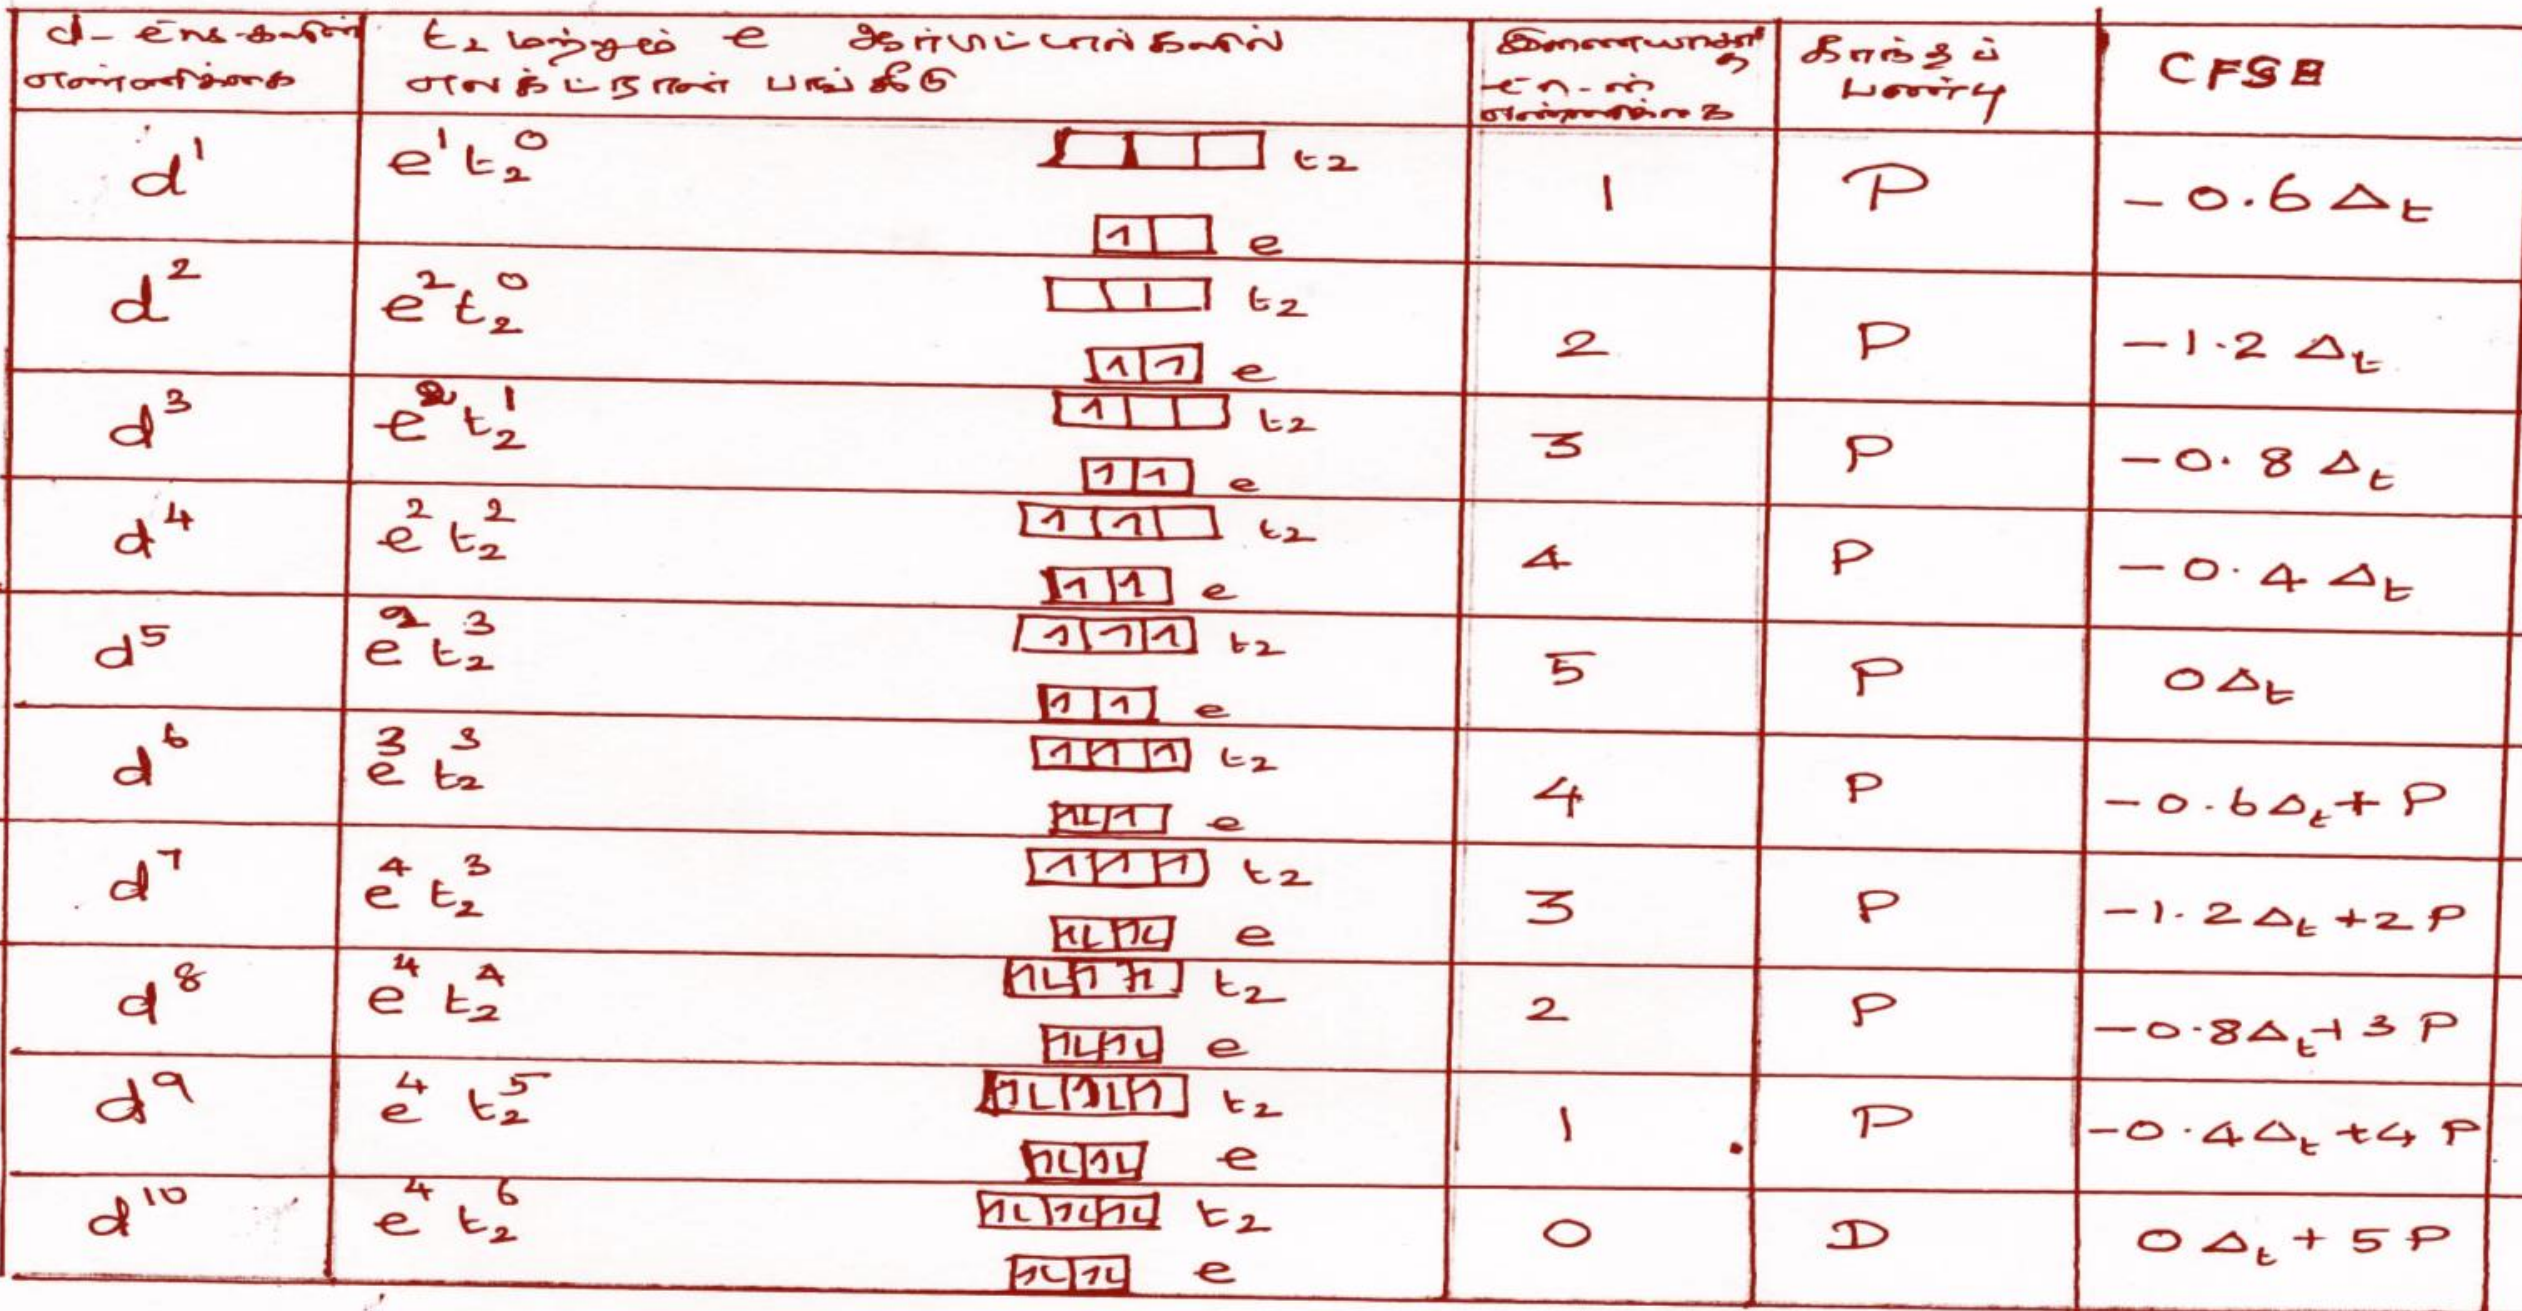 d- எண்களின் எண்ணிக்கை
t₂ மற்றும் e ஆர்பிட்டால்களில் எலக்ட்ரான் பங்கீடு
எண்ணிக்கை
காந்தப் பண்பு
CFSE
d¹ e¹ t₂⁰ t₂ e 1 P -0.6 Δt
d² e² t₂⁰ t₂ e 2 P -1.2 Δt
d³ e² t₂¹ t₂ e 3 P -0.8 Δt
d⁴ e² t₂² t₂ e 4 P -0.4 Δt
d⁵ e² t₂³ t₂ e 5 P 0Δt
d⁶ e³ t₂³ t₂ e 4 P -0.6Δt + P
d⁷ e⁴ t₂³ t₂ e 3 P -1.2Δt +2P
d⁸ e⁴ t₂⁴ t₂ e 2 P -0.8Δt+3P
d⁹ e⁴ t₂⁵ t₂ e 1 P -0.4Δt +4P
d¹⁰ e⁴ t₂⁶ t₂ e 0 D 0Δt + 5P